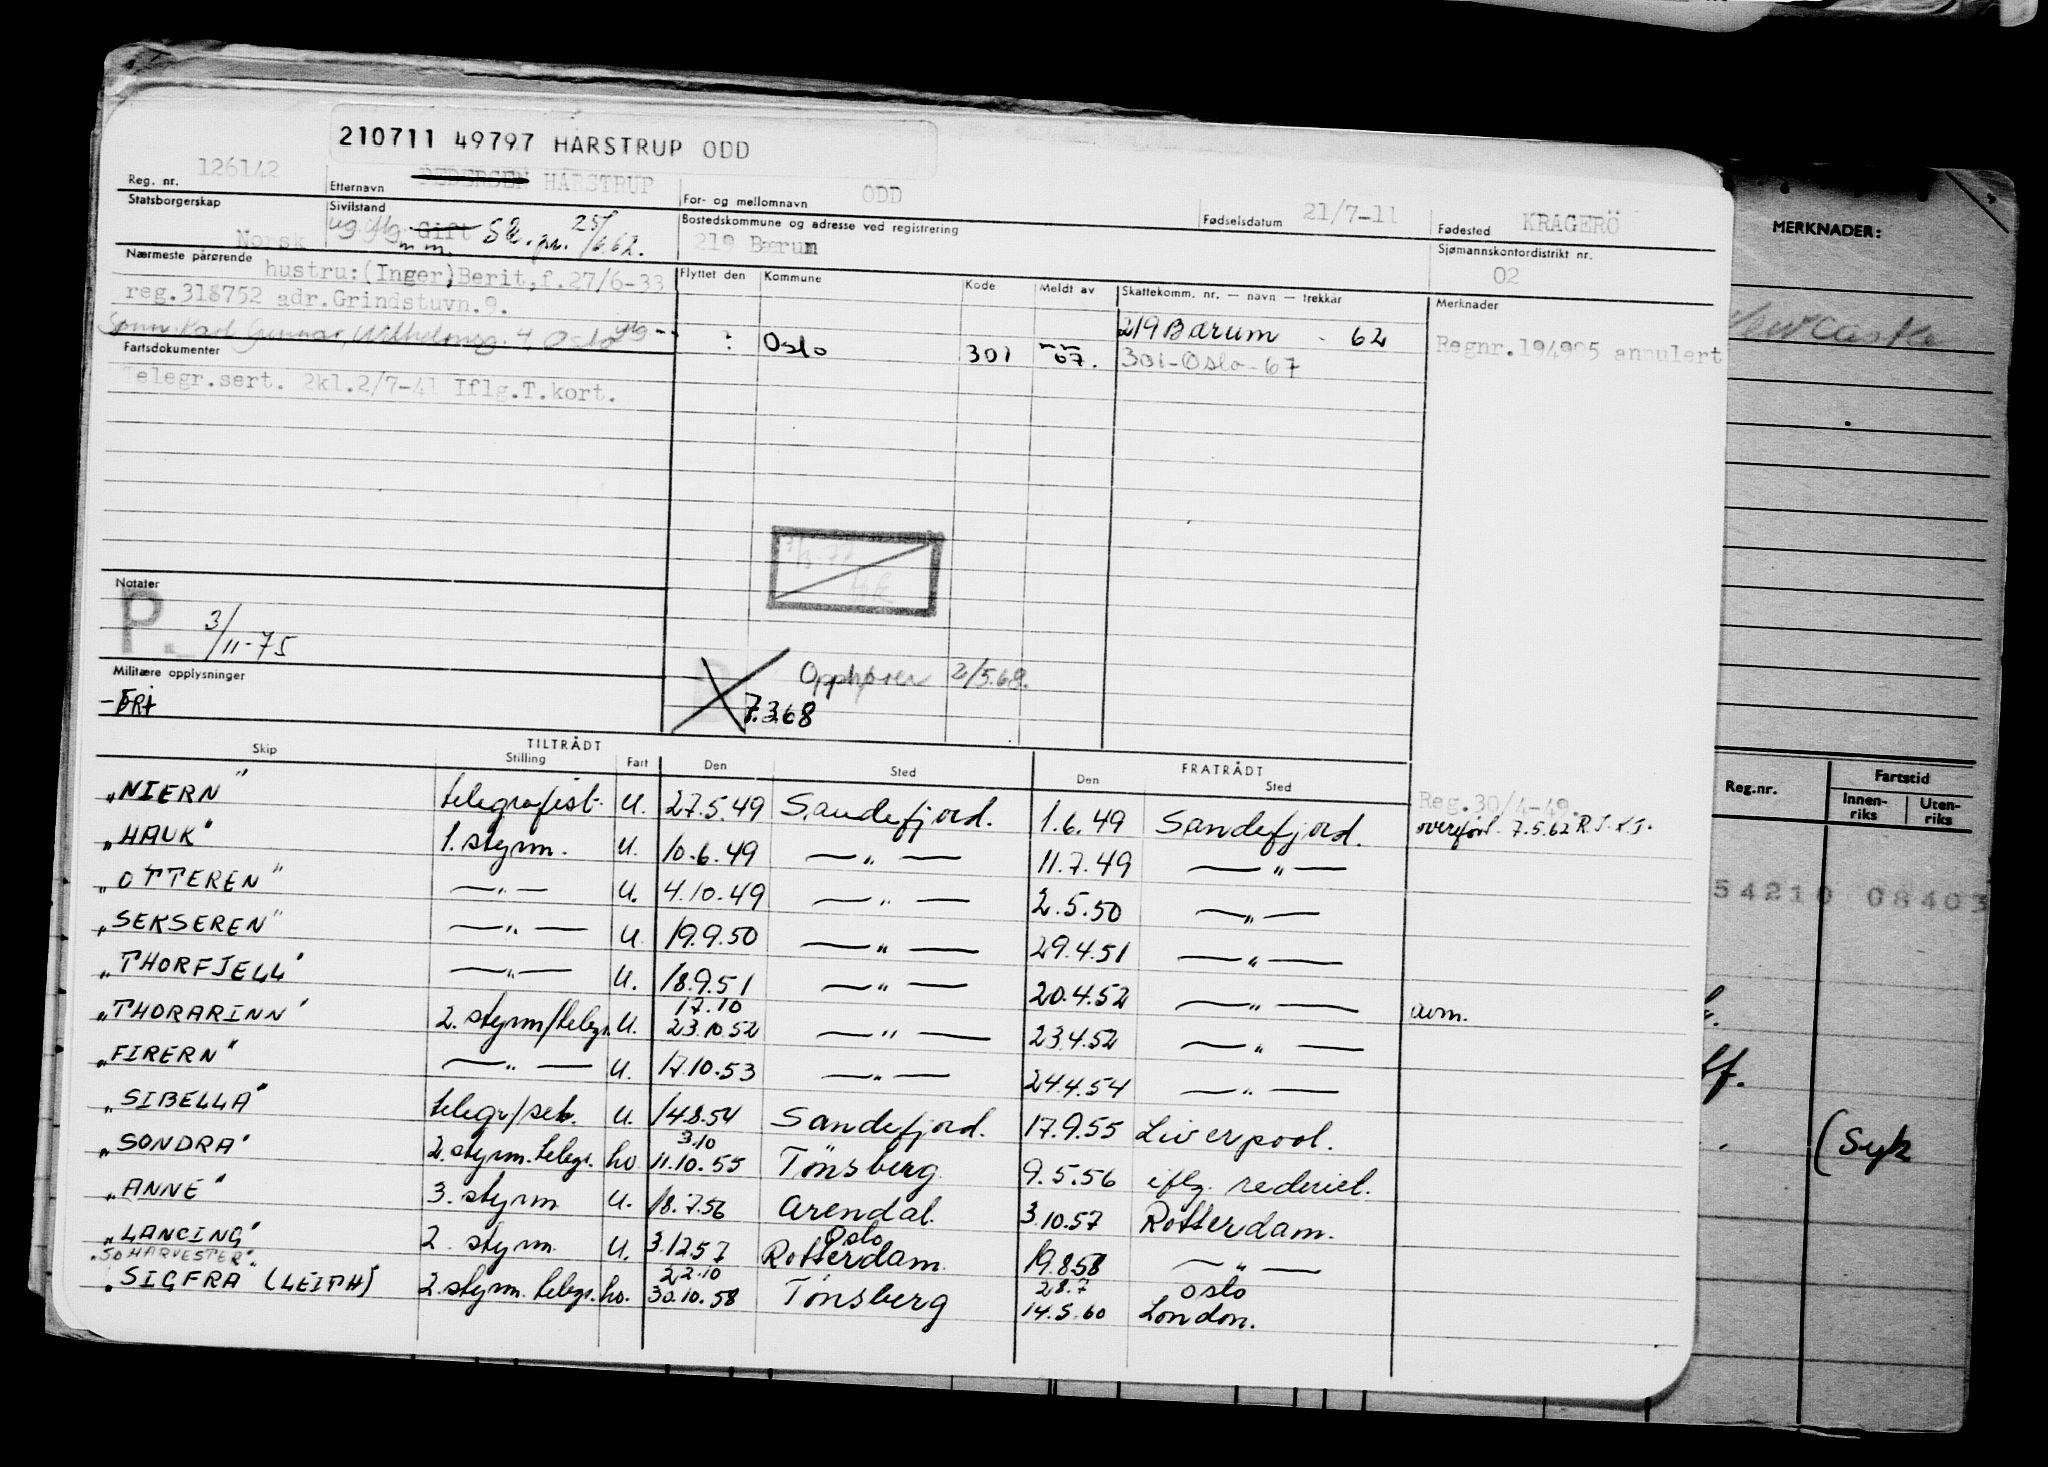 210711 49797 HARSTRUP ODD
Reg. nr. 126142 Etternavn PEDERSEN HARSTRUP For- og mellomnavn ODD Fødselsdatum 21/7-11 Fødested KRAGERÖ
Statsborgerskap Norsk Sivilstand ug.iflg. Gift m.m. 25/6.62. Bostedskommune og adresse ved registrering 219 Bærum Sjømannskontordistrikt nr. 02
Nærmeste pårørende hustru:(Inger)Berit,f.27/6-33
reg.318752 adr.Grindstuvn.9.
Sønn Karl Gunnar, Wilhelmsg. 4, Oslo
Flyttet den Kommune Kode Meldt av Skattekomm. nr. — navn — trekkår Merknader
219 Bærum - 62
? Oslo 301 67. 301-Oslo-67
Regnr. 194905 annulert
Fartsdokumenter
Telegr.sert. 2kl.2/7-41 Iflg.T.kort.
Notater
P. 3/11-75
Militære opplysninger
-FRI
Opphører 2/5.68.
7.3.68
TILTRÅDT FRATRÅDT
Skip Stilling Fart Den Sted Den Sted
Reg.30/4-49.
"NIERN" telegrafist. U. 27.5.49 Sandefjord. 1.6.49 Sandefjord. overført 7.5.62
"HAUK" 1. styrm. U. 10.6.49 — " — 11.7.49 — " —
"OTTEREN" — " — U. 4.10.49 — " — 2.5.50 — " —
"SEKSEREN" — " — U. 19.9.50 — " — 29.4.51 — " —
"THORFJELL" — " — U. 18.9.51 — " — 20.4.52 — " — avm.
17.10
"THORARINN" 2. styrm/telegr. U. 23.10.52 — " — 23.4.52 — " —
"FIRERN" — " — U. 17.10.53 — " — 24.4.54 — " —
"SIBELLA" telegr/sek. U. 14.8.54 Sandefjord. 17.9.55 Liverpool.
3.10
"SONDRA" 2. styrm. telegr. ho 11.10.55 Tønsberg 9.5.56 iflg. rederiet.
"ANNE" 3. styrm U. 18.7.56 Arendal. 3.10.57 Rotterdam.
Oslo
"LANCING" 2. styrm. U. 3.12.57 Rotterdam. 19.8.58 — " —
"SO HARVESTER" 22.10 28.7 Oslo
"SIGFRA (LEITH) 2. styrm. telegr. ho. 30.10.58 Tønsberg 14.5.60 London.
MERKNADER:
Newcastle
Reg.nr. Fartstid
Innen-riks Uten-riks
54210 08403
(Syk